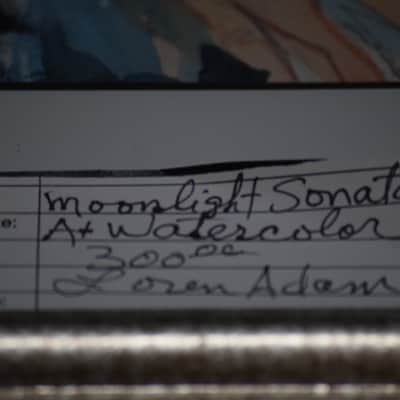 Moonlight Sonat
e: A+ Watercolor
300.00
Loren Adam